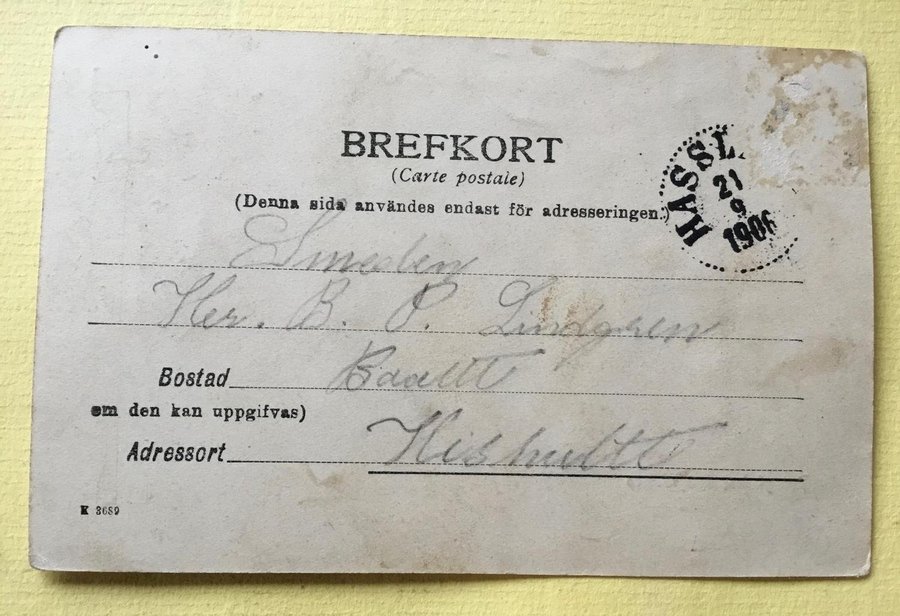 BREFKORT
(Carte postale)
(Denna sida användes endast för adresseringen.)
HASSL
21
9
1906
Smeden
Her. B. P. Lindgren
Bostad
em den kan uppgifvas)
Adressort Hishultt
K 3689